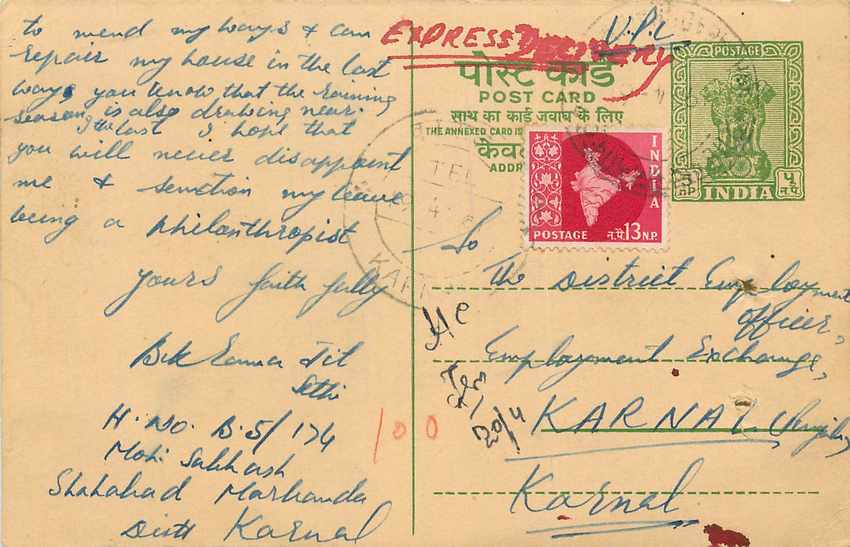 to mend my ways & can
repair my house in the last
ways, you know that the raining
season is also drawing near.
In the last I hope that
you will never disappoint
me & senction my leave
being a philanthropist
Yours faithfully
Bikrama Jit
Sethi
H. No. B. 5/174
Moh: Subhash
Shahabad Markanda
Distt Karnal
EXPRESS DELIVERY
U.P.C
पोस्ट कार्ड
POST CARD
साथ का कार्ड जवाब के लिए
THE ANNEXED CARD IS
केव
ADDR
POSTAGE
INDIA
५
न.पै.
N.P.
INDIA
POSTAGE
न.पै.13 N.P.
To
The District Employment
Officer,
Employment Exchange,
KARNAL
Karnal
20/4
100